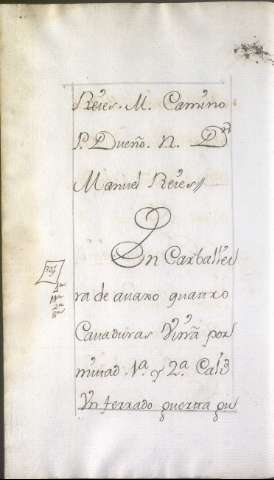 Reies. M. Camino
P. Dueño. N. Dⁿ
Manuel Reies//
En Carballei
ra de avaxo quatro
Cavaduras Viña por
mitad 1ª y 2ª Calˢ
Un ferrado guerta pu